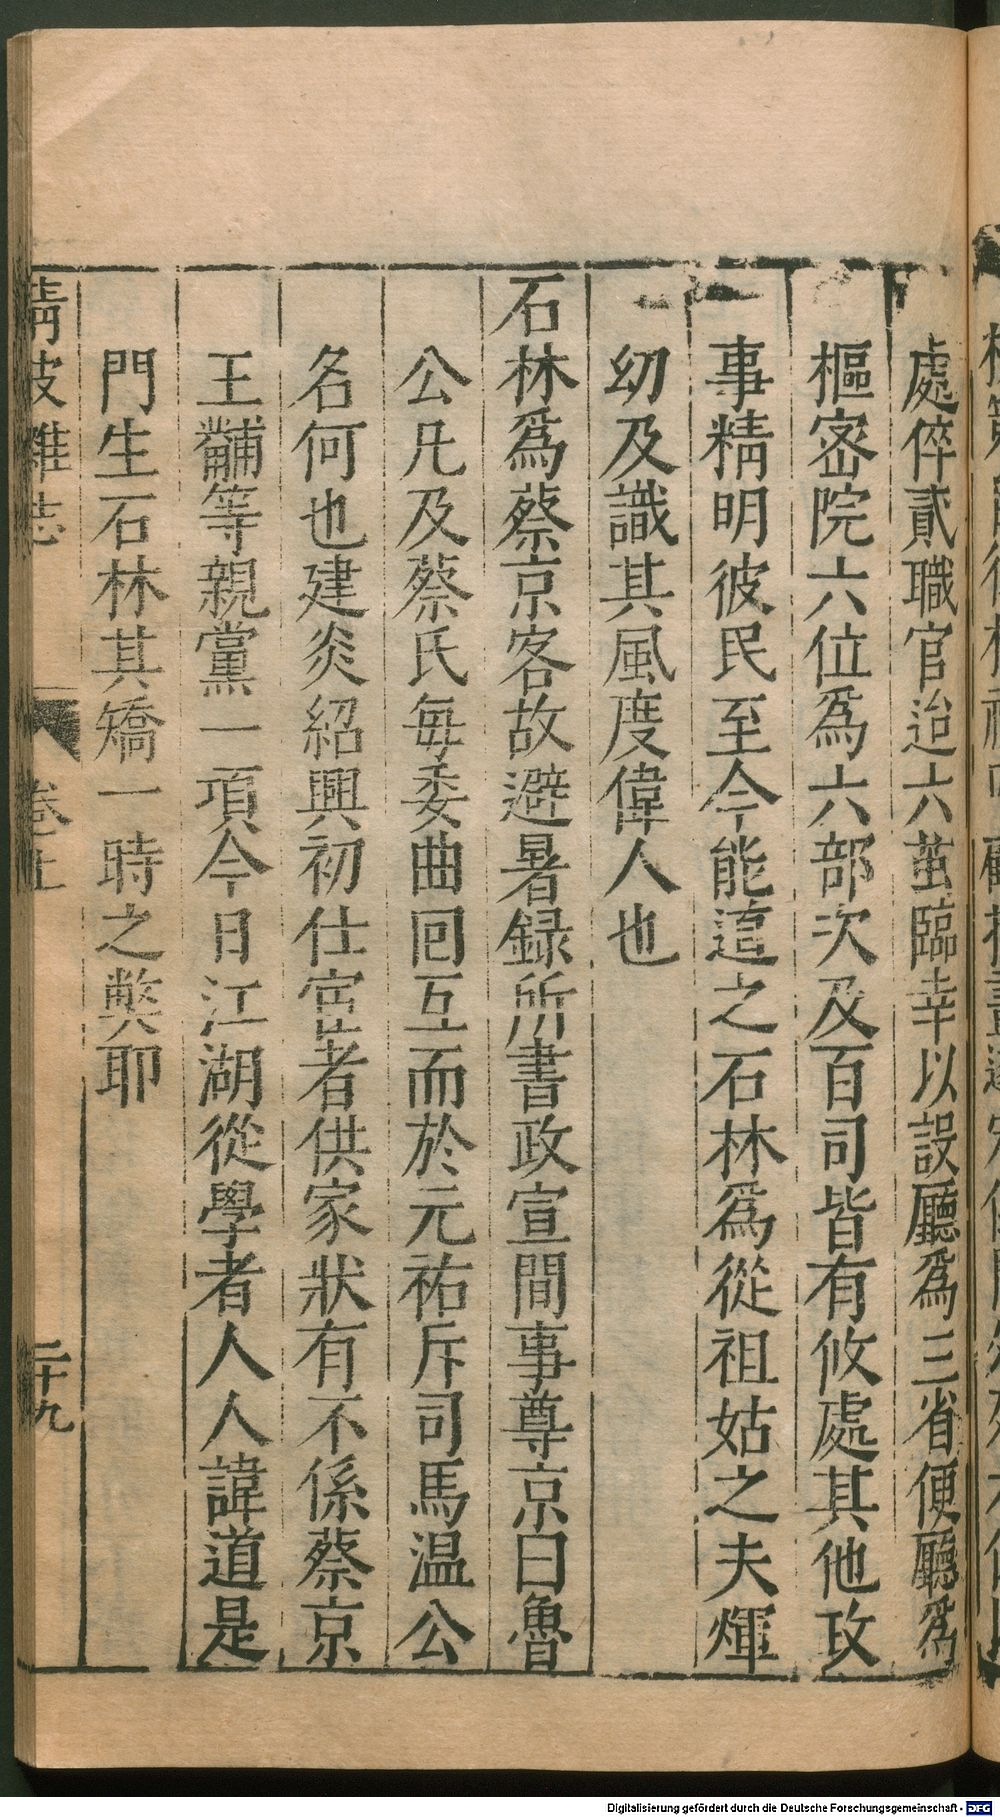 處倅貳職官迨六茧臨幸以設廳爲三省便廳爲
樞宻院六位爲六部次及百司皆有攸處其他攻
事精明彼民至今能這之石林爲從祖姑之夫煇
幼及識其風度偉人也
石林爲蔡京客故避暑録所書政宣間事尊京曰魯
公凡及蔡氏每委曲回互而於元祐斥司馬温公
名何也建炎紹興初仕宦者供家狀有不係蔡京
王黼等親黨一項今日江湖從學者人人諱道是
門生石林其矯一時之獘耶
清波雜志
卷上
二十九
Digitalisierung gefördert durch die Deutsche Forschungsgemeinschaft - DFG